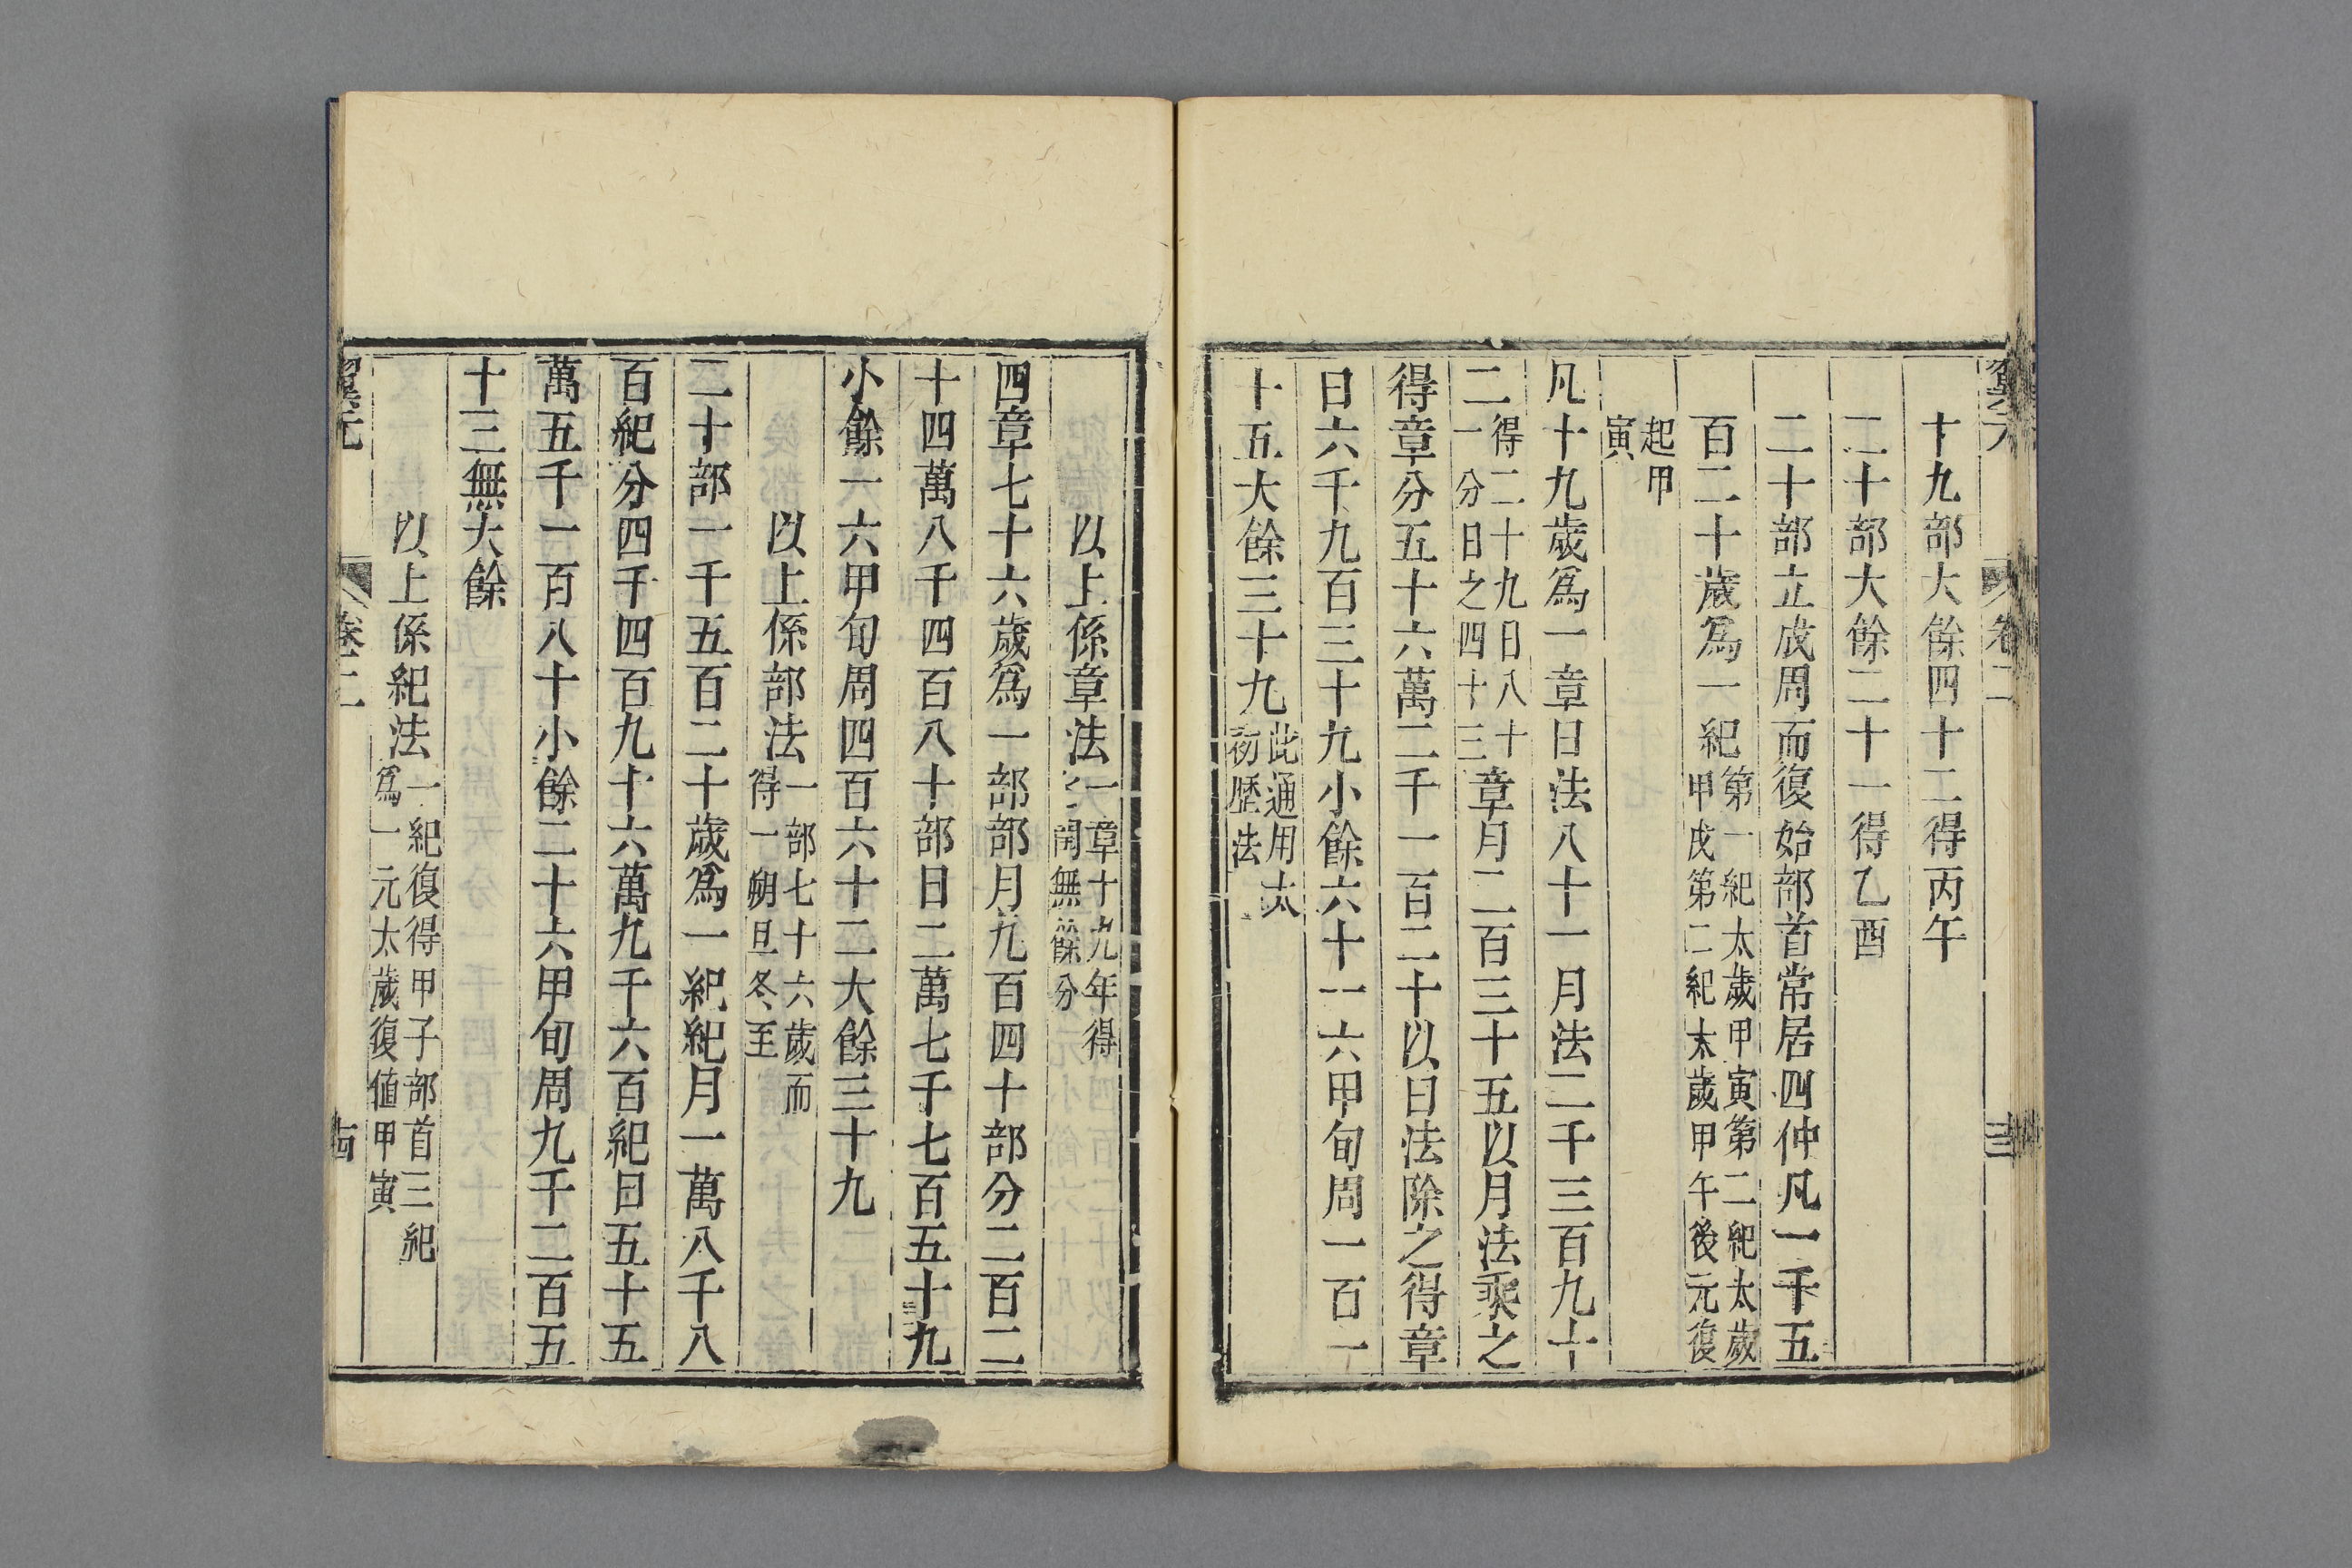 卷二
十九部大餘四十二得丙午
二十部大餘二十一得乙酉
二十部立成周而復始部首常居四仲凡一千五
百二十歲爲一紀第一紀太歲甲寅第二紀太歲
甲戌第二紀太歲甲午後元復
起甲
寅
凡十九歲爲一章日法八十一月法二千三百九十
二得二十九日八十
一分日之四十三章月二百三十五以月法乘之
得章分五十六萬二千一百二十以日法除之得章
日六千九百三十九小餘六十一六甲旬周一百一
十五大餘三十九此通用太
初歷法
以上係章法一章十九年得
閏無餘分
四章七十六歲爲一部部月九百四十部分二百二
十四萬八千四百八十部日二萬七千七百五十九
小餘一六甲旬周四百六十二大餘三十九
以上係部法一部七十六歲而
得一朔旦冬至
二十部一千五百二十歲爲一紀紀月一萬八千八
百紀分四千四百九十六萬九千六百紀日五十五
萬五千一百八十小餘二十六甲旬周九千二百五
十三無大餘
以上係紀法一紀復得甲子部首三紀
爲一元太歲復值甲寅
翼元
卷二